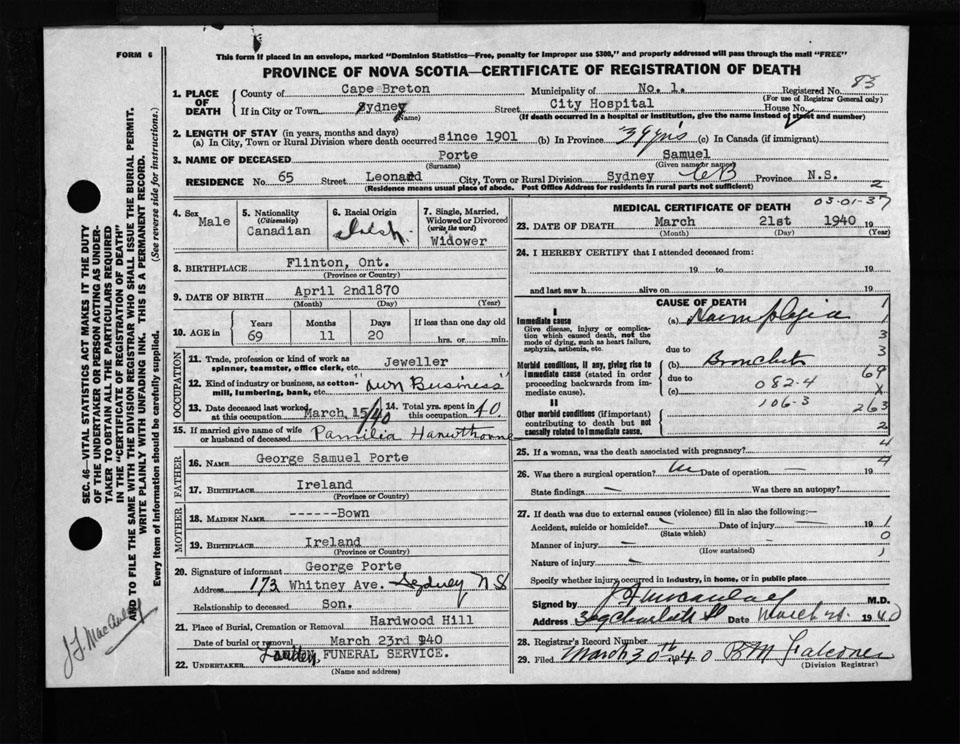 FORM 6
This form if placed in an envelope, marked "Dominion Statistics—Free, penalty for improper use $300," and properly addressed will pass through the mail "FREE"
PROVINCE OF NOVA SCOTIA—CERTIFICATE OF REGISTRATION OF DEATH
83
1. PLACE OF DEATH
County of Cape Breton Municipality of No. 1. Registered No.
(For use of Registrar General only)
If in City or Town Sydney Street City Hospital House No.
(Name)
(If death occurred in a hospital or institution, give the name instead of street and number)
2. LENGTH OF STAY (in years, months and days)
(a) In City, Town or Rural Division where death occurred since 1901 (b) In Province 39 yrs (c) In Canada (if immigrant)
3. NAME OF DECEASED Porte Samuel
(Surname) (Given name or names)
RESIDENCE No. 65 Street Leonard City, Town or Rural Division Sydney CB Province N.S.
2
(Residence means usual place of abode. Post Office Address for residents in rural parts not sufficient)
4. Sex
Male
5. Nationality
(Citizenship)
Canadian
6. Racial Origin
Irish.
7. Single, Married, Widowed or Divorced
(write the word)
Widower
8. BIRTHPLACE Flinton, Ont.
(Province or Country)
9. DATE OF BIRTH April 2nd1870
(Month) (Day) (Year)
10. AGE in
Years Months Days If less than one day old
69 11 20 hrs. or min.
OCCUPATION
11. Trade, profession or kind of work as spinner, teamster, office clerk, etc. Jeweller
12. Kind of industry or business, as cotton-mill, lumbering, bank, etc. "Own Business"
13. Date deceased last worked at this occupation March 15/40
14. Total yrs. spent in this occupation 40.
15. If married give name of wife or husband of deceased Pamilia Hawthorne
FATHER
16. NAME George Samuel Porte
17. BIRTHPLACE Ireland
(Province or Country)
MOTHER
18. MAIDEN NAME ------Bown
19. BIRTHPLACE Ireland
(Province or Country)
20. Signature of informant George Porte
Address 173 Whitney Ave. Sydney N S
Relationship to deceased Son.
21. Place of Burial, Cremation or Removal Hardwood Hill
Date of burial or removal March 23rd 940
22. UNDERTAKER FUNERAL SERVICE.
(Name and address)
MEDICAL CERTIFICATE OF DEATH
03-01-37
23. DATE OF DEATH March 21st 1940 19
(Month) (Day) (Year)
24. I HEREBY CERTIFY that I attended deceased from:
19 to 19
and last saw h alive on 19
CAUSE OF DEATH
I
Immediate cause
Give disease, injury or complication which caused death, not the mode of dying, such as heart failure, asphyxia, asthenia, etc.
(a)
due to
Morbid conditions, if any, giving rise to immediate cause (stated in order proceeding backwards from immediate cause).
(b)
due to
082-4
(c)
106-3
II
Other morbid conditions (if important) contributing to death but not causally related to immediate cause.
1
1
3
3
69
X
263
2
4
4
25. If a woman, was the death associated with pregnancy?
26. Was there a surgical operation? no Date of operation — 19
State findings — Was there an autopsy?
27. If death was due to external causes (violence) fill in also the following:—
Accident, suicide or homicide? — Date of injury — 19
(State which)
Manner of injury —
(How sustained)
Nature of injury —
1
0
1
Specify whether injury occurred in industry, in home, or in public place
Signed by M.D.
Address 309 Charlotte St Date March 21. 1940
28. Registrar's Record Number
29. Filed March 30th 1940 B M Falconer
(Division Registrar)
SEC. 46—VITAL STATISTICS ACT MAKES IT THE DUTY OF THE UNDERTAKER OR PERSON ACTING AS UNDERTAKER TO OBTAIN ALL THE PARTICULARS REQUIRED IN THE "CERTIFICATE OF REGISTRATION OF DEATH" AND TO FILE THE SAME WITH THE DIVISION REGISTRAR WHO SHALL ISSUE THE BURIAL PERMIT.
WRITE PLAINLY WITH UNFADING INK. THIS IS A PERMANENT RECORD.
Every item of information should be carefully supplied. (See reverse side for instructions.)
J. J. MacAulay